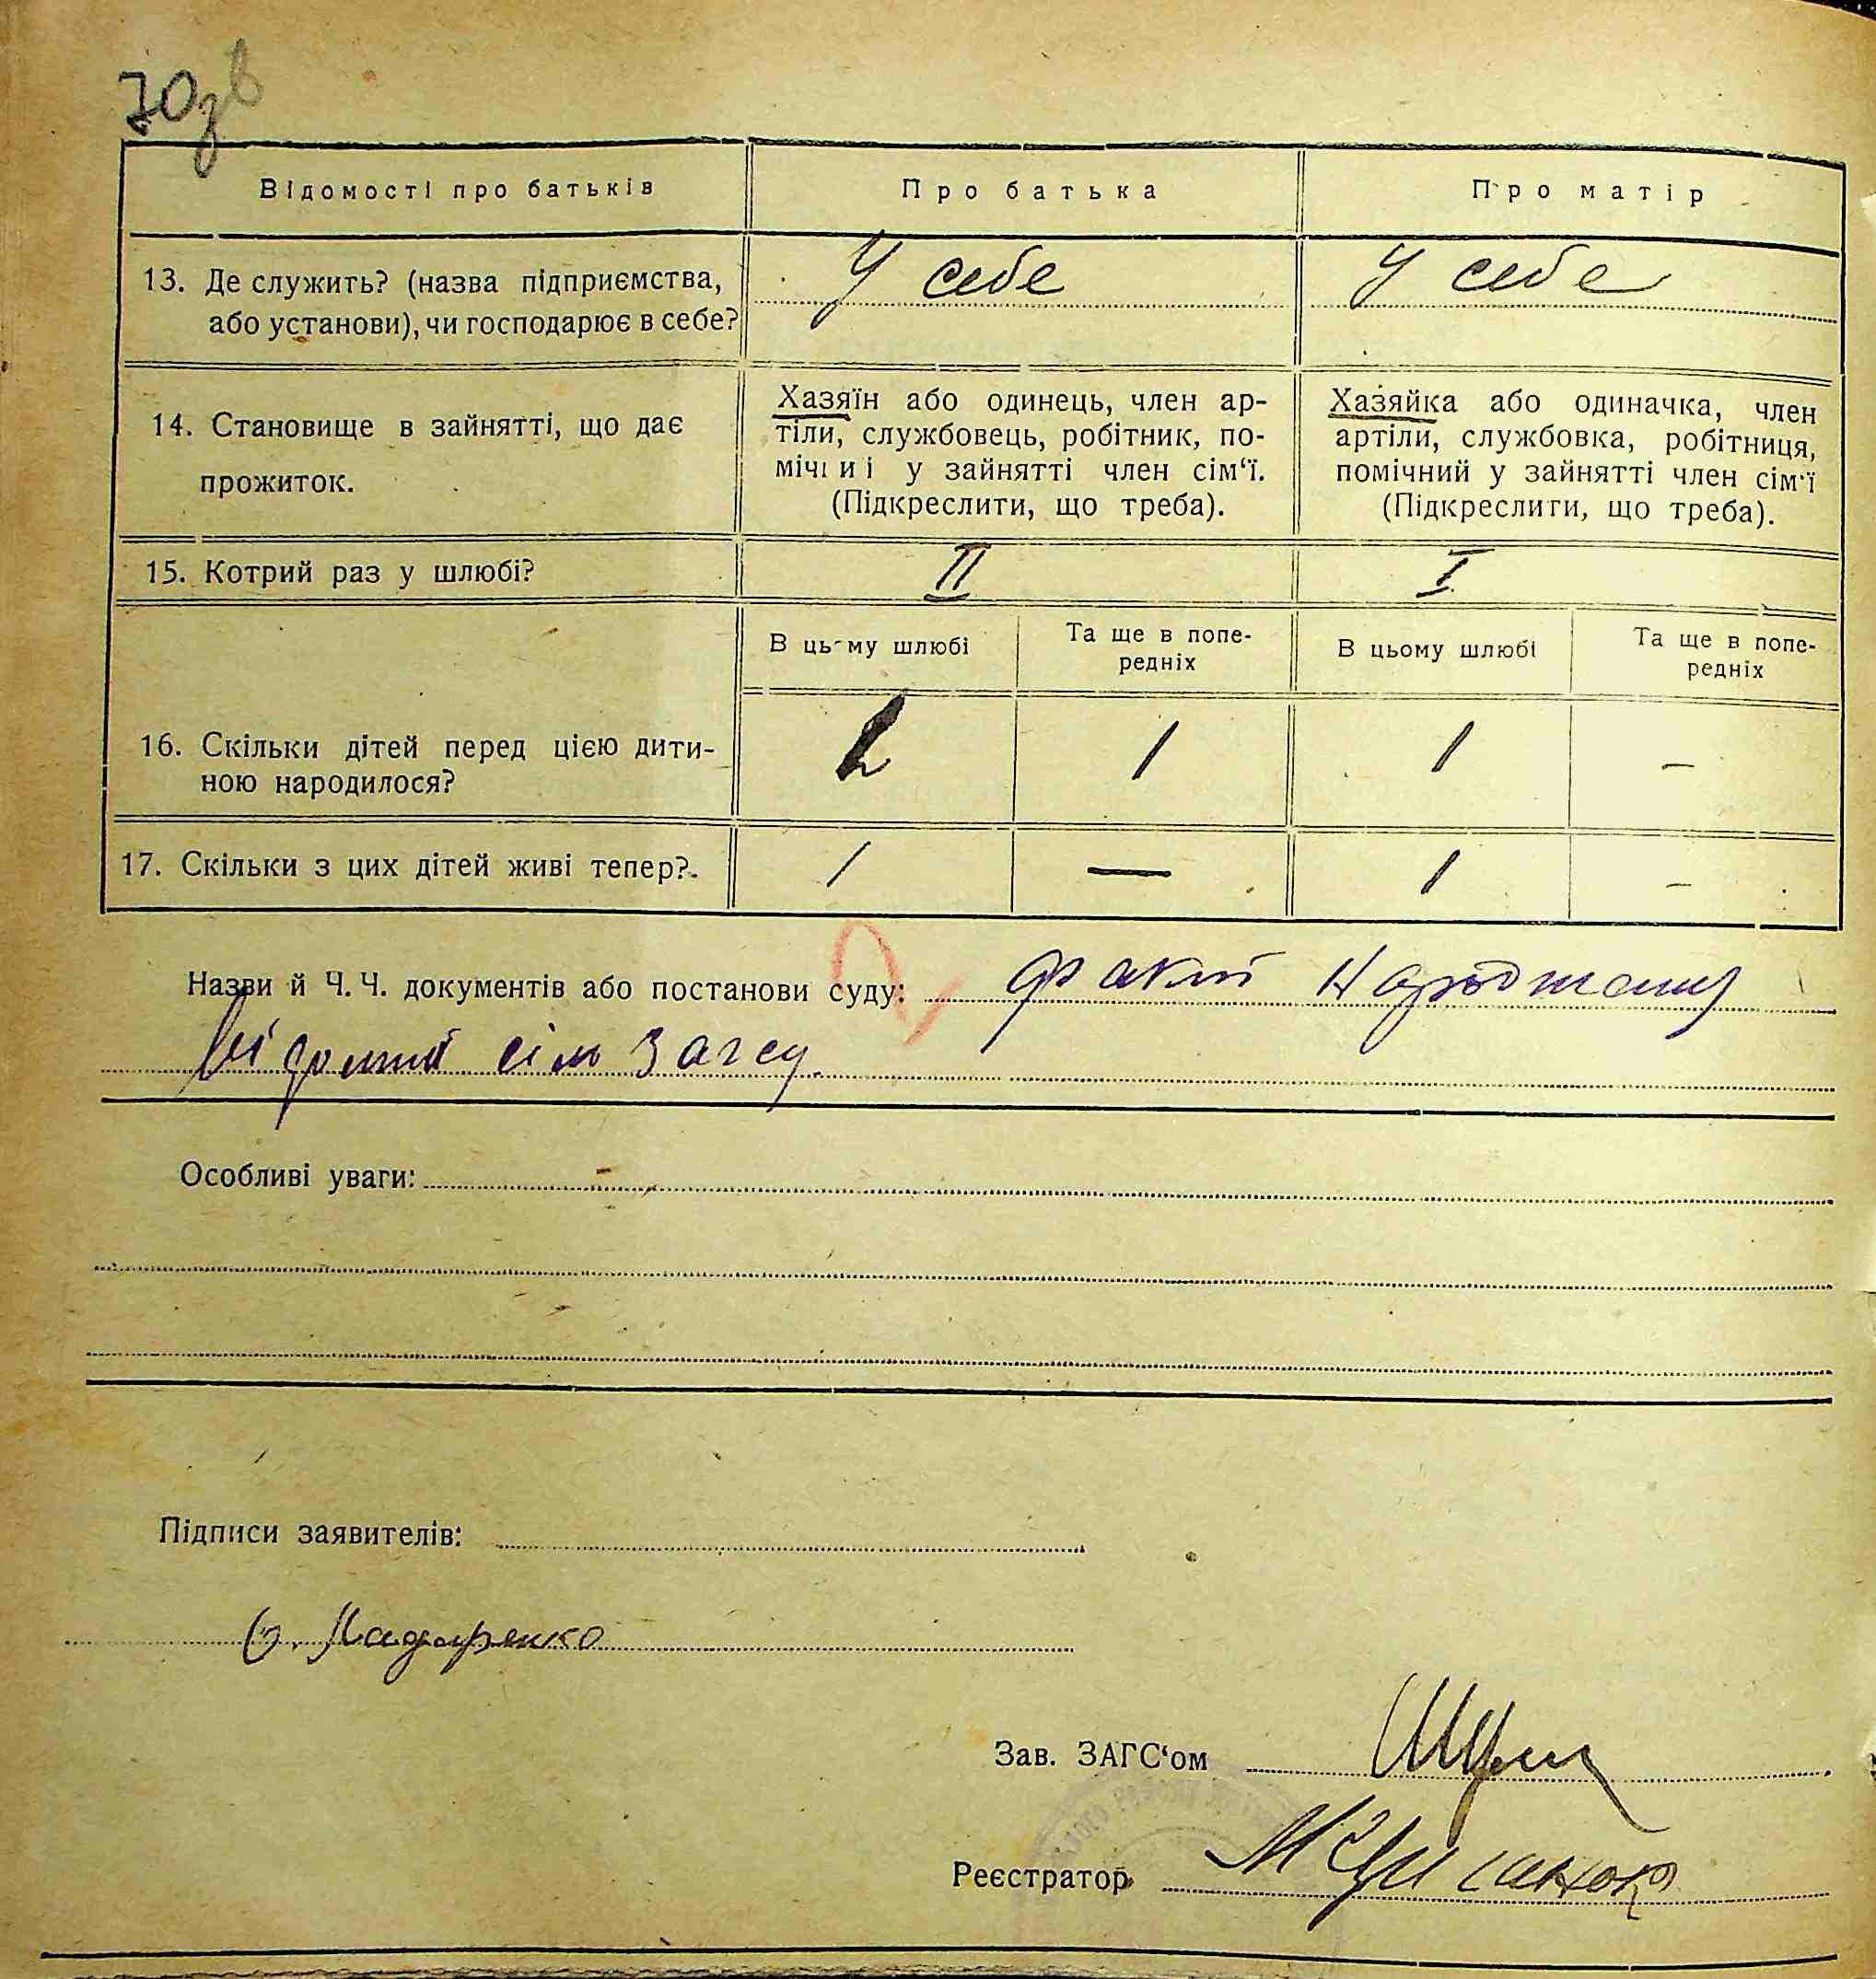 70зв
Відомості про батьків
Про батька
Про матір
13. Де служить? (назва підприємства,
або установи), чи господарює в себе?
У себе
У себе
14. Становище в зайнятті, що дає
прожиток.
Хазяїн або одинець, член ар-
тіли, службовець, робітник, по-
мічний у зайнятті член сім'ї.
(Підкреслити, що треба).
Хазяйка або одиначка, член
артіли, службовка, робітниця,
помічний у зайнятті член сім'ї
(Підкреслити, що треба).
15. Котрий раз у шлюбі?
II
I
В цьому шлюбі
Та ще в попе-
редніх
В цьому шлюбі
Та ще в попе-
редніх
16. Скільки дітей перед цією дити-
ною народилося?
1
1
–
17. Скільки з цих дітей живі тепер?
1
—
1
–
Назви й Ч.Ч. документів або постанови суду: факт народження
відомий сіль Загсу.
Особливі уваги:
Підписи заявителів:
Зав. ЗАГС'ом
Реєстратор